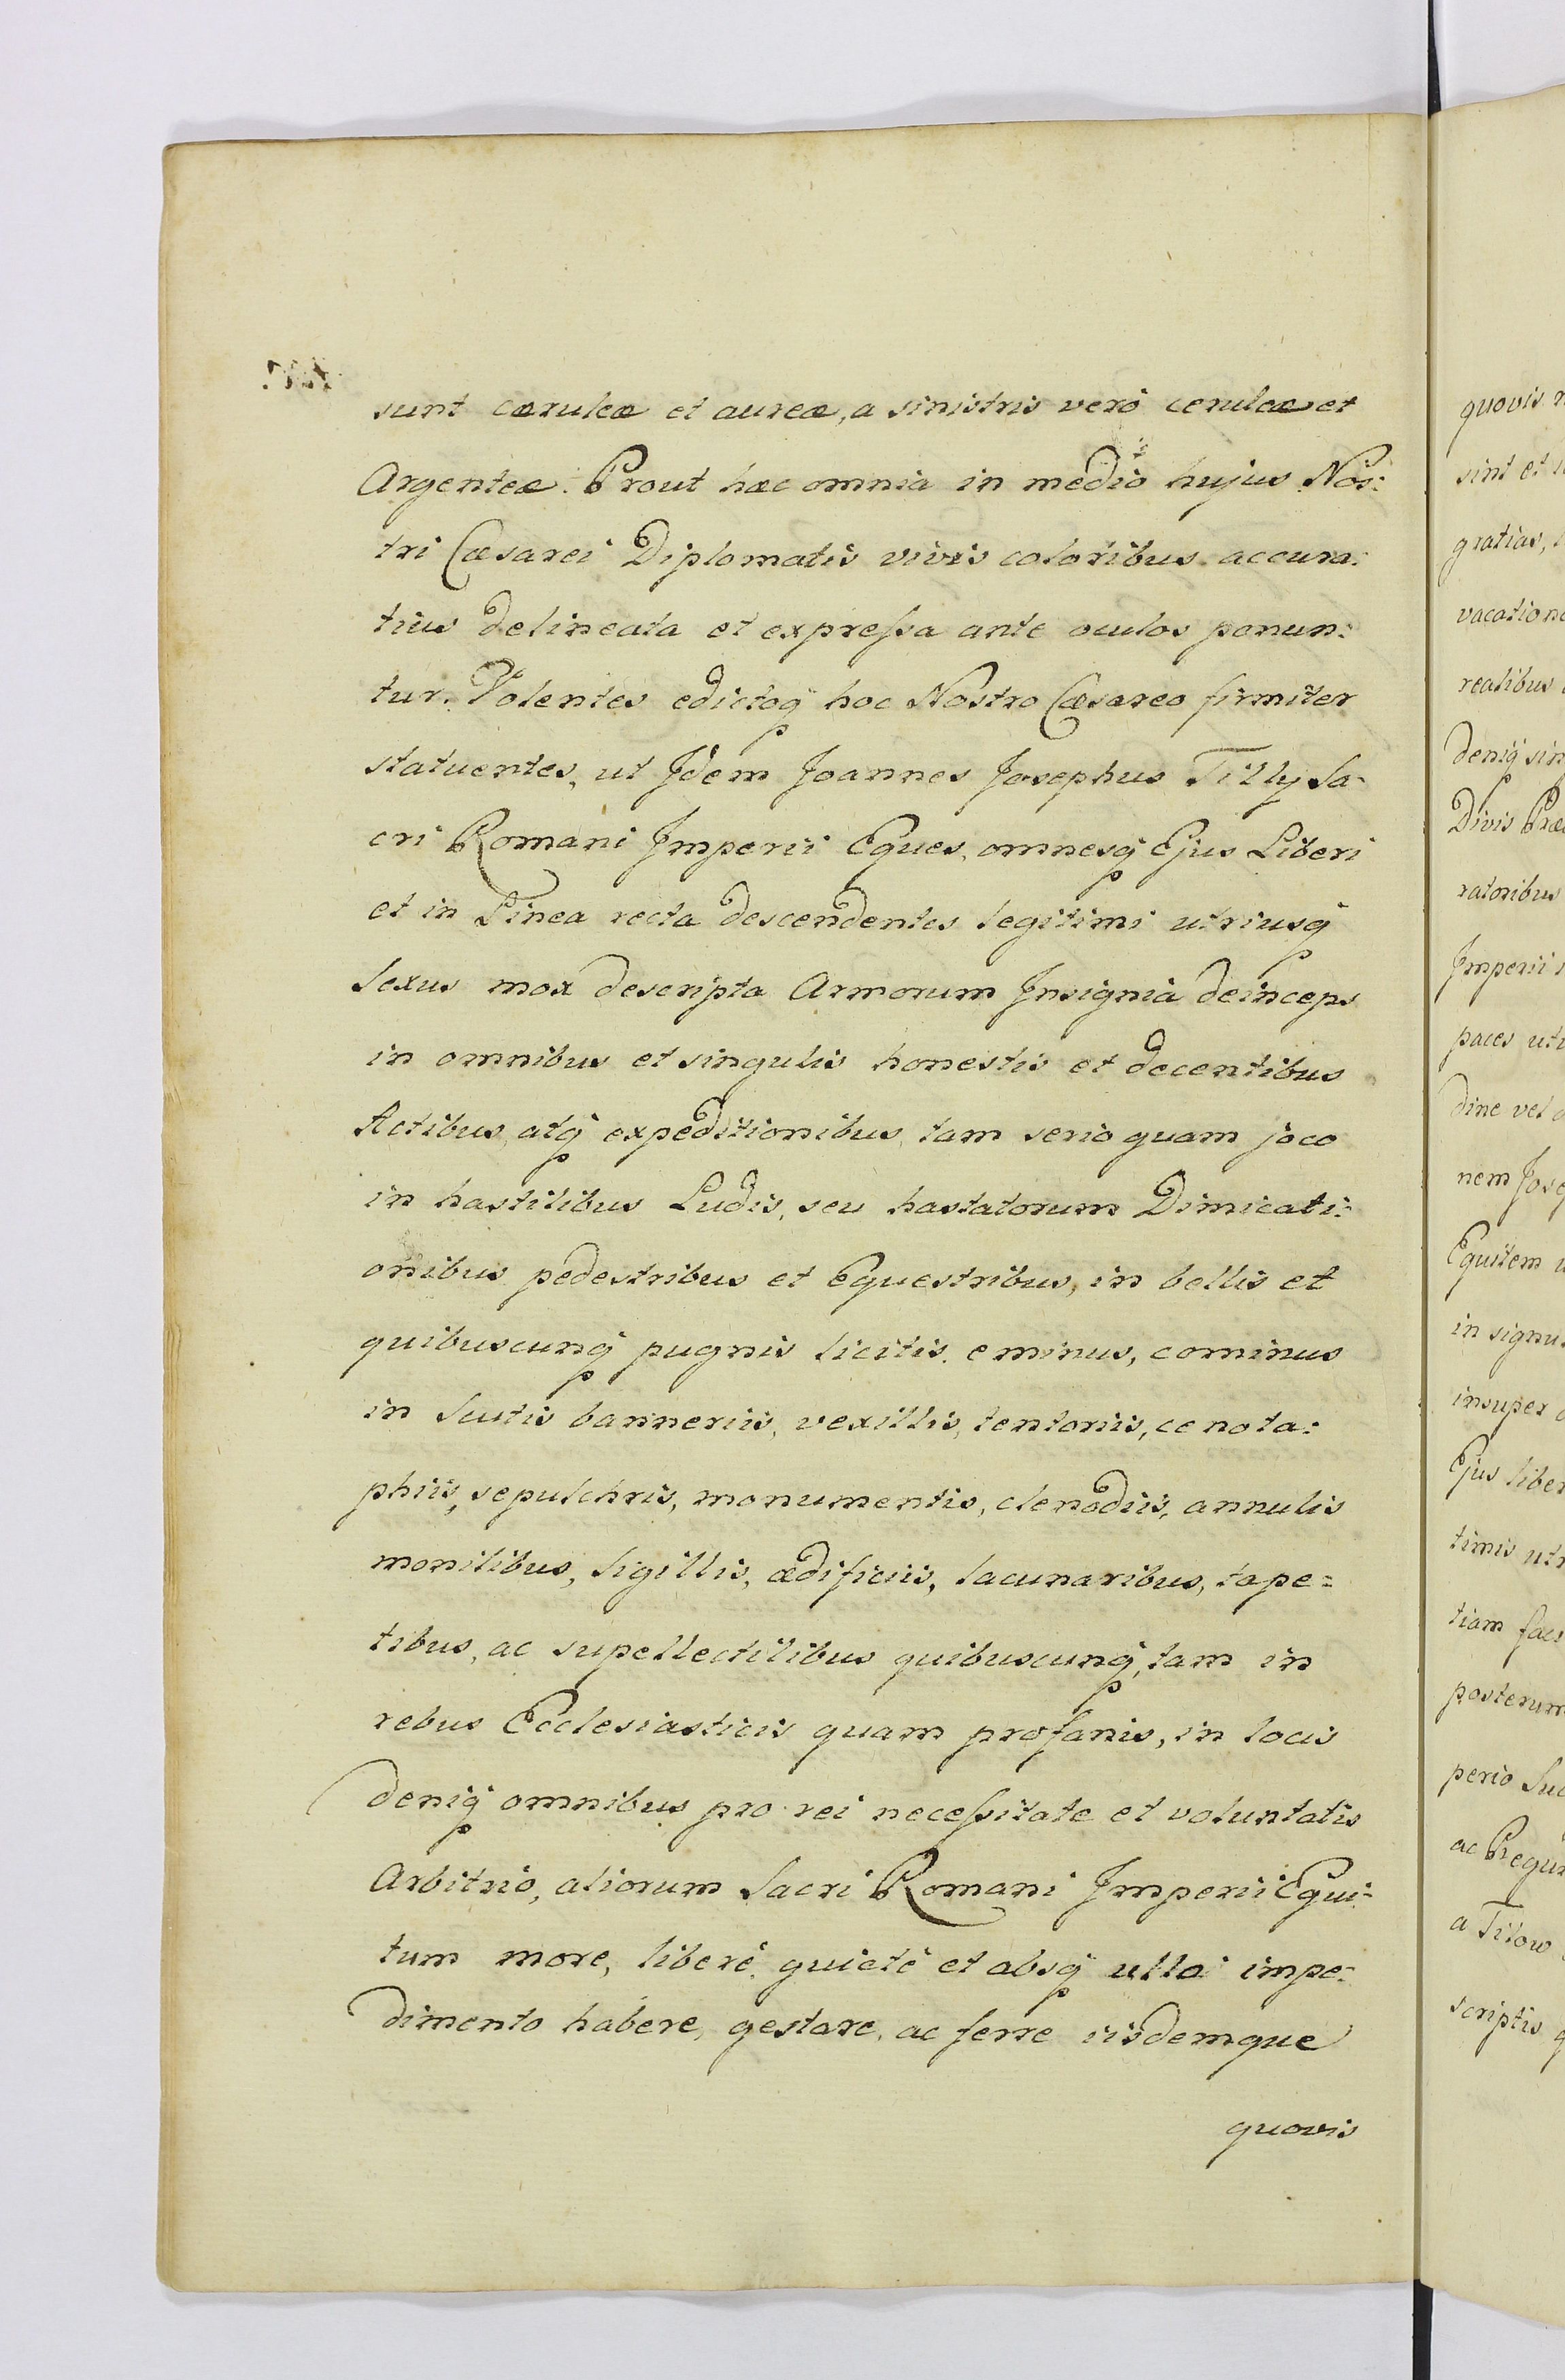 sunt cæruleæ et aureæ, a sinistris verò ceruleæ et
Argenteæ. Prout hæc omnia in medio hujus Nos:
tri Cæsarei Diplomatis vivis coloribus accura:
tius delineata et expreſsa ante oculos ponun:
tur. Volentes edictoq̃ hoc Nostro Cæsareo firmiter
statuentes, ut Jdem Joannes Josephus Tilly Sa:
cri Romani Jmperii Eques, omnesq̃ Ejus Liberi
et in Linea recta descendentes legitimi utriusq̃
Sexus mox descripta Armorum Jnsignia deinceps
in omnibus et singulis honestis et decentibus
Actibus atq̃ expeditionibus, tam serio quam joco
in hastilibus Ludis, seu hastatorum Dimicati:
onibus pedestribus et Equestribus, in bellis et
quibuscunq̃ pugnis licitis, eminus, cominus
in Scutis banneriis, vexillis, tentoriis, cenota:
phiis, sepulchris, monumentis, clenodiis, annulis
monilibus, Sigillis, ædificiis, lacunaribus, tape=
tibus, ac supellectilibus quibuscunq̃, tam in
rebus Ecclesiasticis quam profanis, in locis
deniq̃ omnibus pro rei neceſsitate et voluntatis
Arbitrio, aliorum Sacri Romani Jmperii Equi:
tum more, liberè, quietè et absq̃ ullo impe:
dimento habere, gestare, ac ferre iisdemque
quovis
quovis
sint et
gratias,
vacation
realibus
deniq̃ sin
Divis Præ
ratoribus
Jmperii
paces uti
dine vel
nem Jose
Equitem
in signu
insuper
Ejus liber
timis utr
tiam fac
posterum
perio Suc
ac Regu
a Tilow
scriptis q